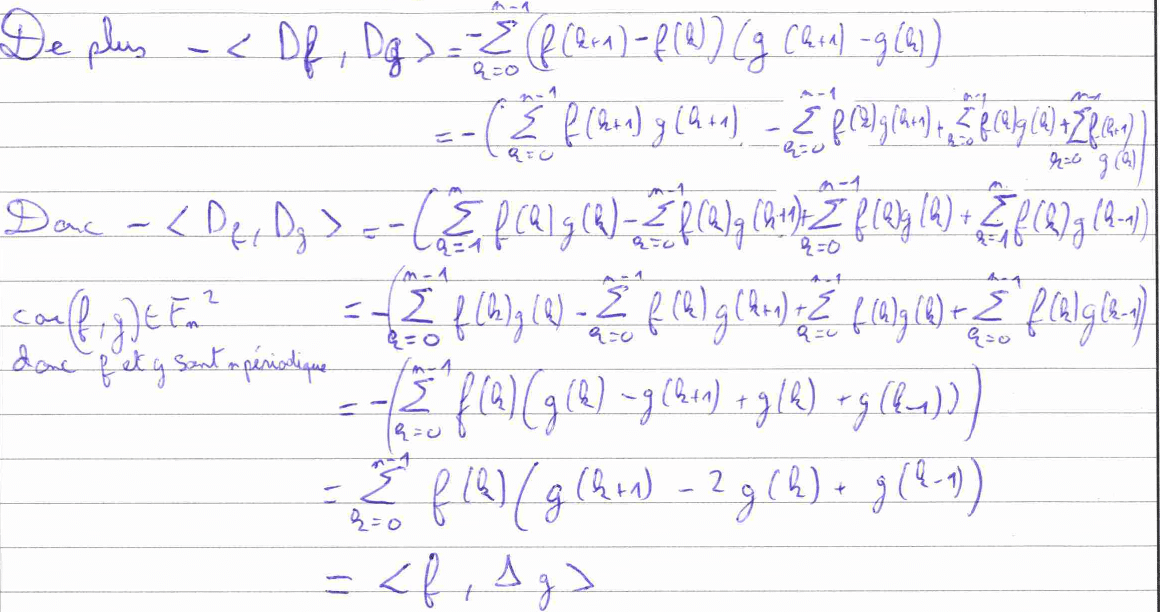 De plus - < Df, Dg > = -∑_{k=0}^{n-1} (f(k+1) - f(k)) (g(k+1) - g(k))
= -( ∑_{k=0}^{n-1} f(k+1) g(k+1) - ∑_{k=0}^{n-1} f(k)g(k+1) + ∑_{k=0}^{n-1} f(k)g(k) + ∑_{k=0}^{n-1} f(k+1) g(k) )
Donc - < Df, Dg > = -( ∑_{k=1}^{n} f(k)g(k) - ∑_{k=0}^{n-1} f(k)g(k+1) + ∑_{k=0}^{n-1} f(k)g(k) + ∑_{k=1}^{n} f(k)g(k-1) )
car (f, g) ∈ E_n^2 = -( ∑_{k=0}^{n-1} f(k)g(k) - ∑_{k=0}^{n-1} f(k) g(k+1) + ∑_{k=0}^{n-1} f(k)g(k) + ∑_{k=0}^{n-1} f(k)g(k-1) )
donc f et g sont n périodique
= -( ∑_{k=0}^{n-1} f(k) ( g(k) - g(k+1) + g(k) + g(k-1) ) )
= ∑_{k=0}^{n-1} f(k) ( g(k+1) - 2 g(k) + g(k-1) )
= < f, Δ g >